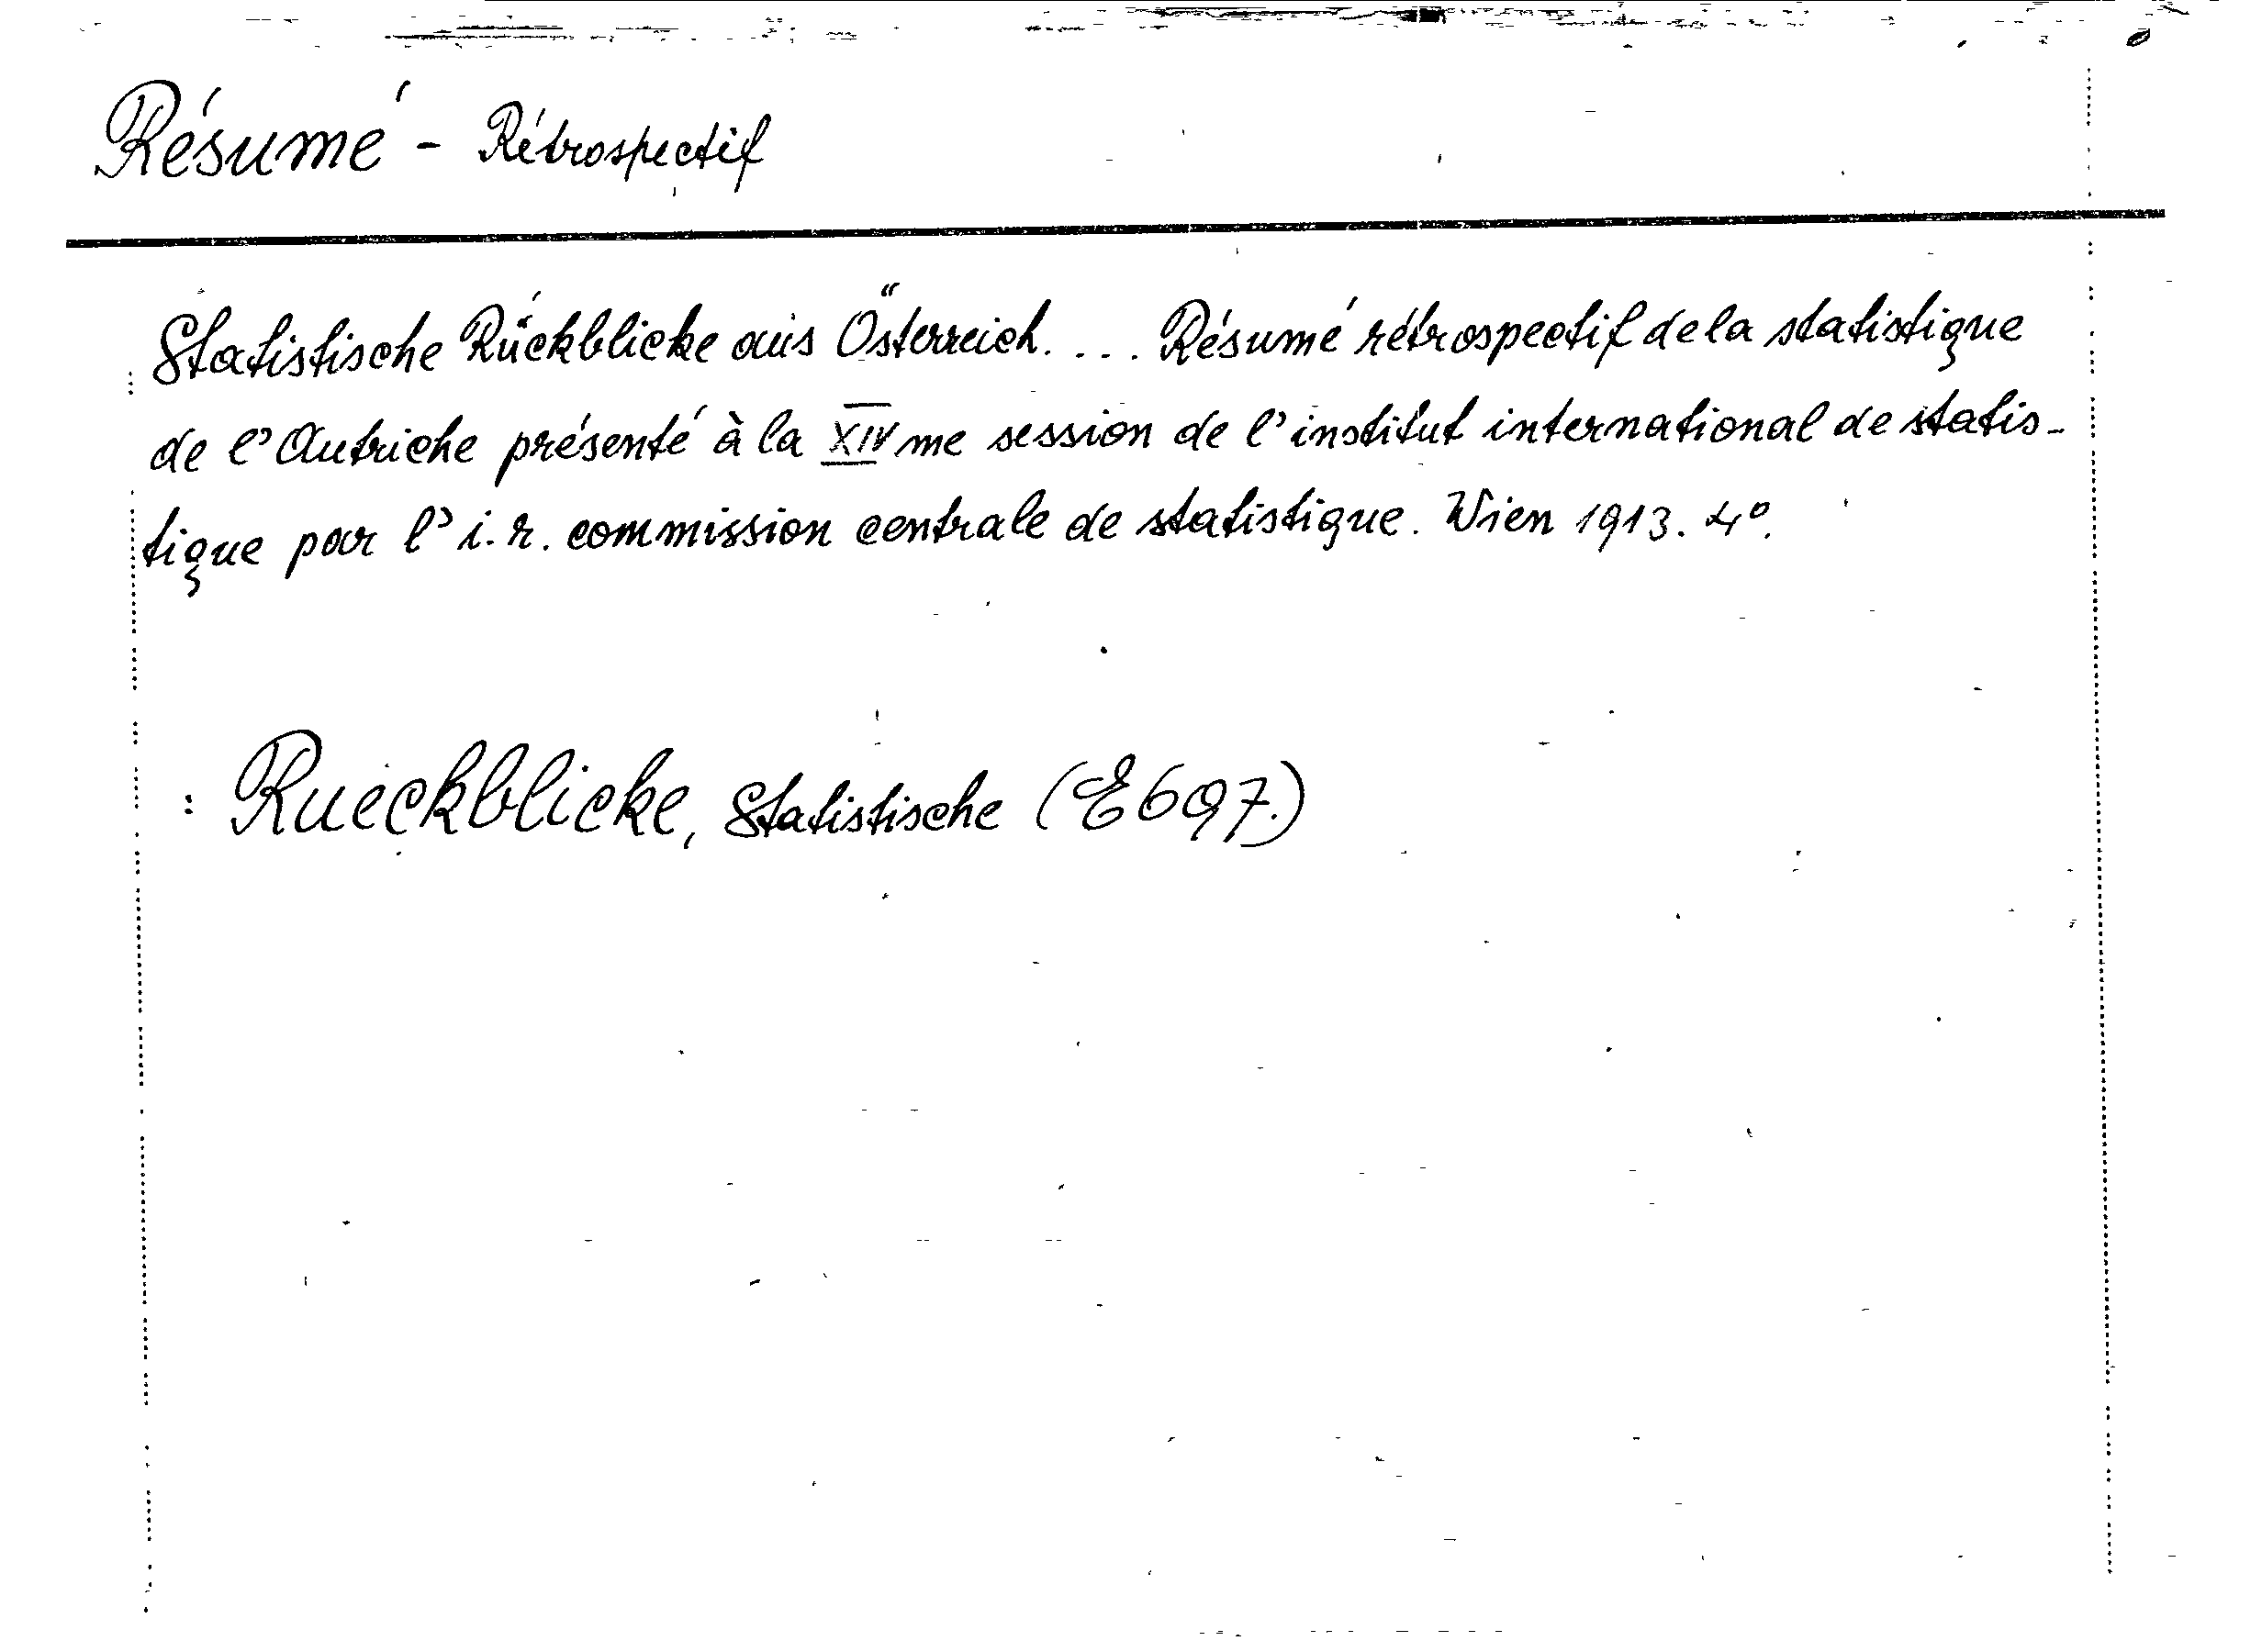 Résumé - Rétrospectif
Statistische Rückblicke aus Österreich. ... Résumé rétrospectif de la statistique
de l'Autriche présenté à la XIVme session de l'institut international de statis-
tique par l' i. r. commission centrale de statistique. Wien 1913. 4°.
: Rueckblicke, Statistische (E697.)